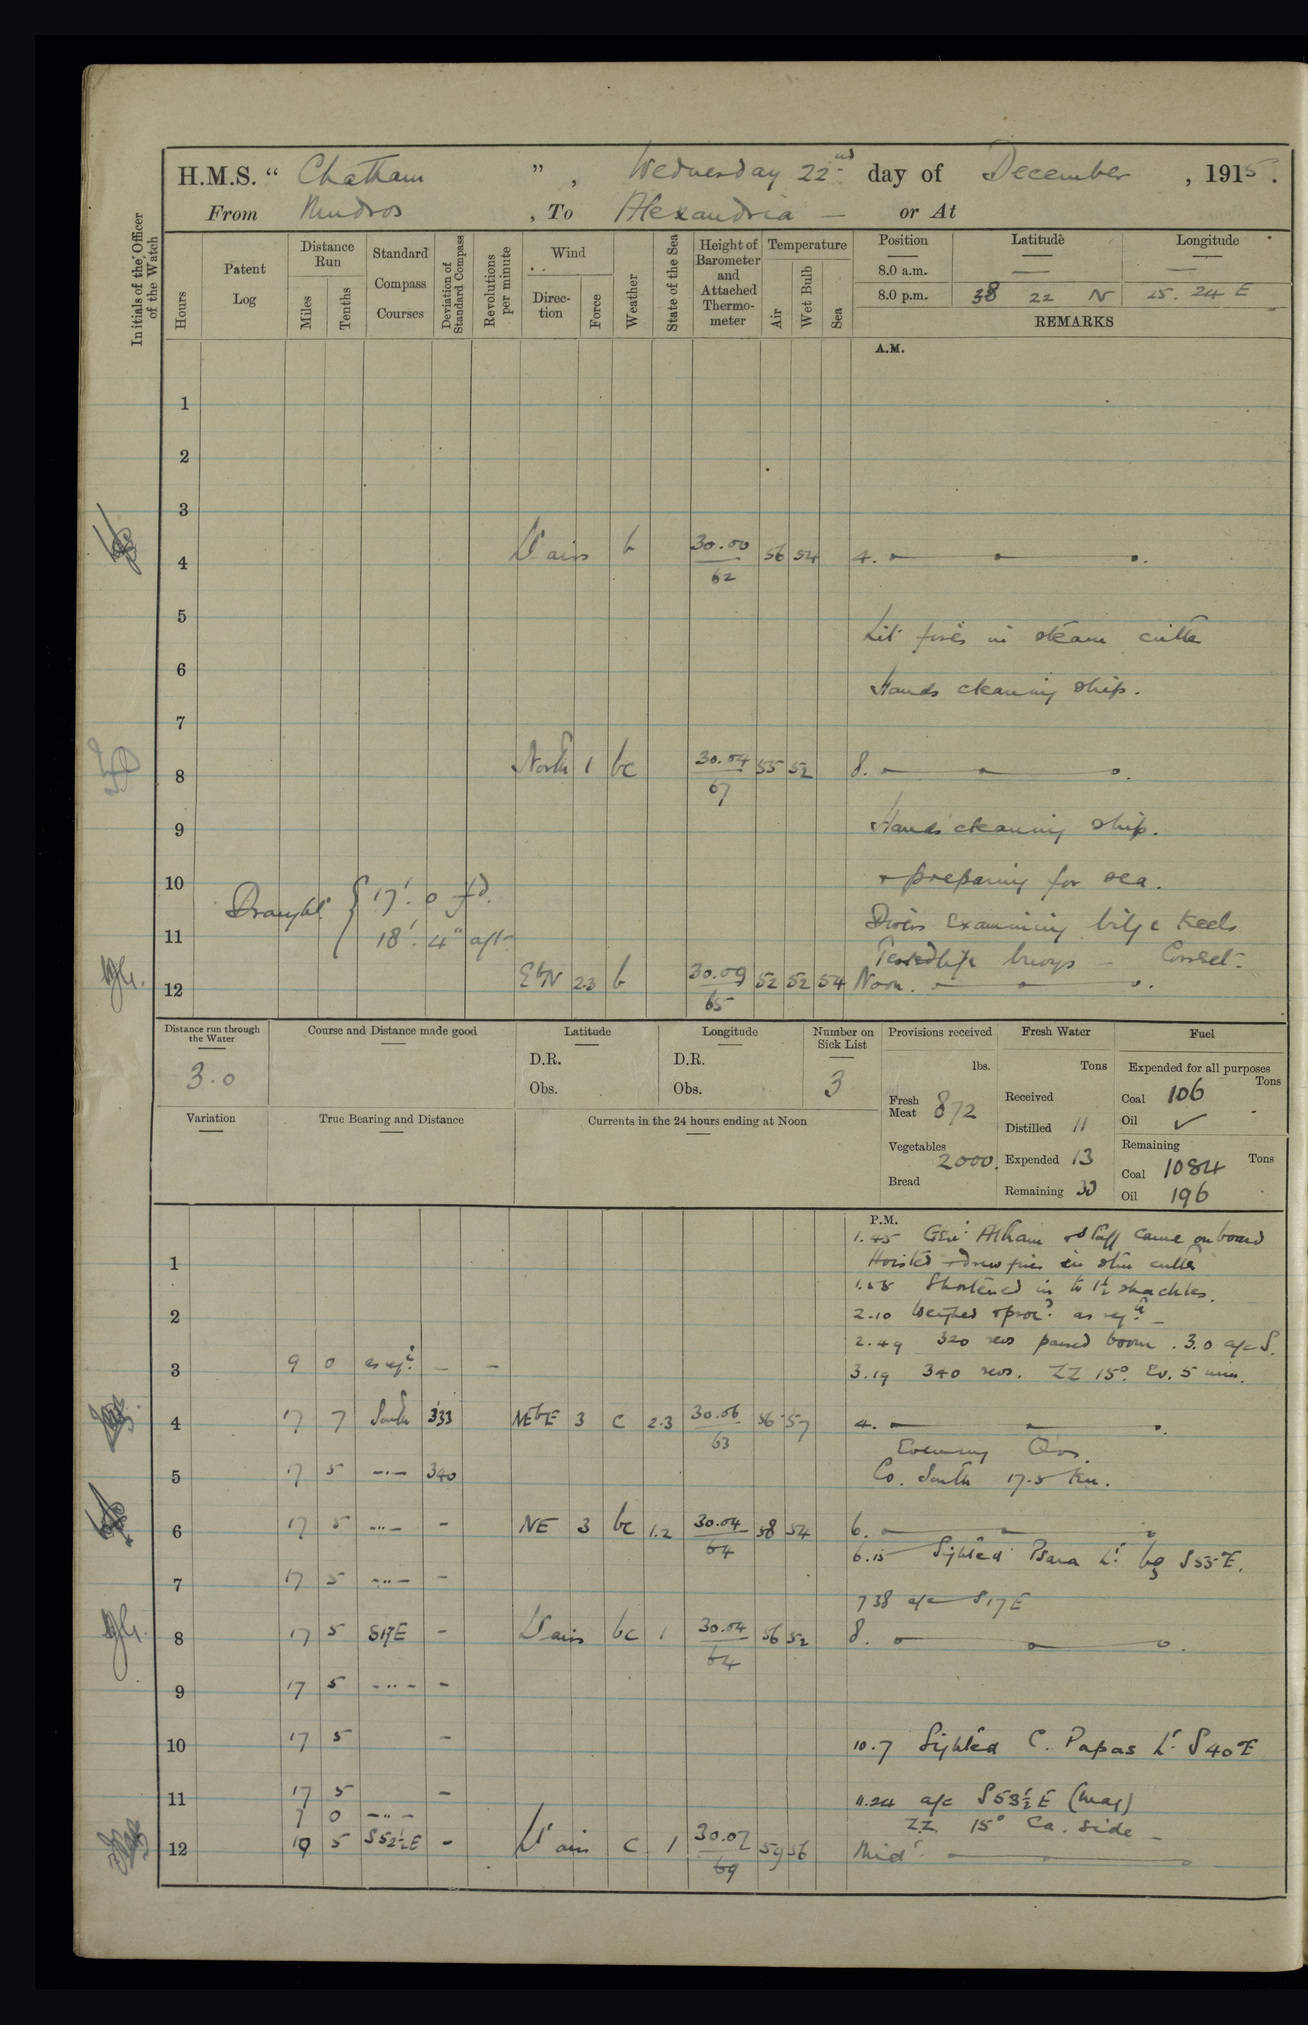 H.M.S. “ Chatham ” , Wednesday 22nd day of December , 1915 .
From Mudros , To Alexandria — or At
Initials of the Officer of the Watch
Hours
Patent Log
Distance Run
Miles
Tenths
Standard Compass Courses
Deviation of Standard Compass
Revolutions per minute
Wind
Direction
Force
Weather
State of the Sea
Height of Barometer and Attached Thermometer
Temperature
Air
Wet Bulb
Sea
Position Latitude Longitude
8.0 a.m. — —
8.0 p.m. 38 22 N 25. 24 E
REMARKS
A.M.
1
2
3
4 Lt airs b 30.00 62 56 54 4.
5
Lit fires in steam cutter
6
Hands cleaning ship.
7
8 North 1 bc 30.04 67 55 52 8.
9 Hands cleaning ship.
10 + preparing for sea.
Draught { 17'. 0 fd.
18'. 4" aft
11 Divers Examining bilge keels
Tested life buoys — Correct.
12 EbN 2.3 b 30.09 65 52 52 54 Noon.
Distance run through the Water
3.0
Course and Distance made good
Latitude
D.R.
Obs.
Longitude
D.R.
Obs.
Number on Sick List
3
Provisions received
lbs.
Fresh Meat 872
Vegetables 2000.
Bread
Fresh Water
Tons
Received
Distilled 11
Expended 13
Remaining 30
Fuel
Expended for all purposes
Tons
Coal 106
Oil ✓
Remaining
Tons
Coal 1084
Oil 196
Variation
True Bearing and Distance
Currents in the 24 hours ending at Noon
P.M.
1.45 Genl Altham + Staff came onboard
1 Hoisted + drew fires in stm cutter
Shortened in to 1½ shackles.
2 2.10 Weighed + procd as reqte
2.49 320 revs passed boom . 3.0 a/c S.
3 9 0 as reqte — — 3.19 340 revs. ZZ 15° Ev. 5 min.
4 17 7 South 333 NEbE 3 c 2.3 30.06 63 56 57 4.
Evening Qrs.
5 17 5 —"— 340 Co. South 17.5 Kn.
6 17 5 —"— - NE 3 bc 1.2 30.04 64 58 54 6.
6.15 Sighted Psara Lt bg S 55 E.
7 17 5 —"— -
7 38 a/c S 17 E
8 17 5 S17E - Lt airs bc 1 30.04 64 56 52 8.
9 17 5 —"— -
10 17 5 - 10.7 Sighted C. Papas Lt. S 40 E
11 17 5 - 11.24 a/c S 53½ E (mag)
7 0 —"— ZZ 15° Ea. side
12 10 5 S52½E - Lt airs c 1 30.02 69 59 56 Midt